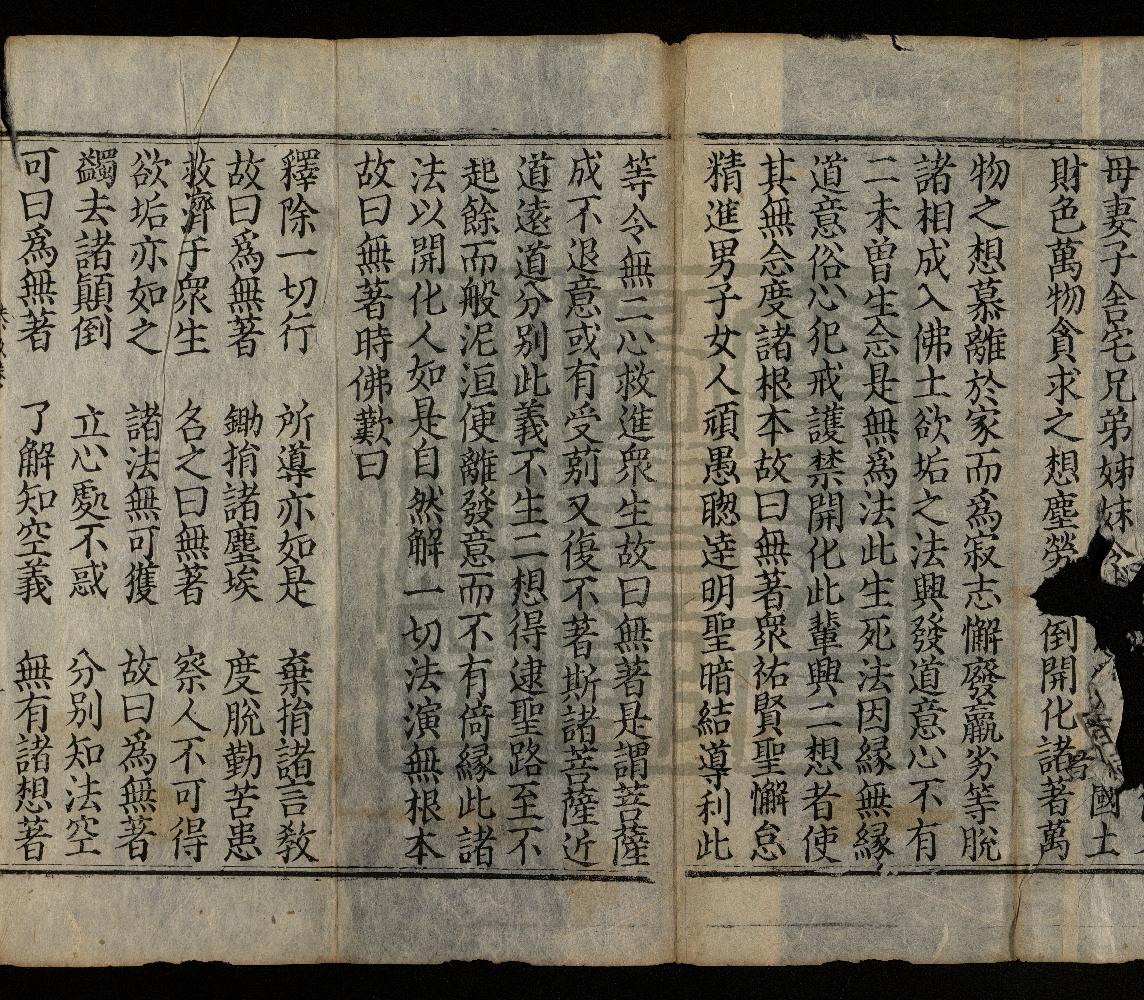 母妻子舍宅兄弟姊妹　國土
財色萬物貪求之想塵勞　倒開化諸著萬
物之想慕離於家而爲寂志懈廢羸劣等脫
諸相成入佛土欲垢之法興發道意心不有
二未曾生念是無爲法此生死法因緣無緣
道意俗心犯戒護禁開化此輩興二想者使
其無念度諸根本故曰無著衆祐賢聖懈怠
精進男子女人頑愚聰達明聖暗結導利此
等令無二心救進衆生故曰無著是謂菩薩
成不退意或有受莂又復不著斯諸菩薩近
道遠道分別此義不生二想得逮聖路至不
起餘而般泥洹便離發意而不有倚緣此諸
法以開化人如是自然解一切法演無根本
故曰無著時佛歎曰
釋除一切行　所導亦如是　棄捐諸言教
故曰爲無著　鋤捐諸塵埃　度脫勤苦患
救濟于衆生　名之曰無著　察人不可得
欲垢亦如之　諸法無可獲　故曰爲無著
蠲去諸顛倒　立心處不惑　分別知法空
可曰爲無著　了解知空義　無有諸想著